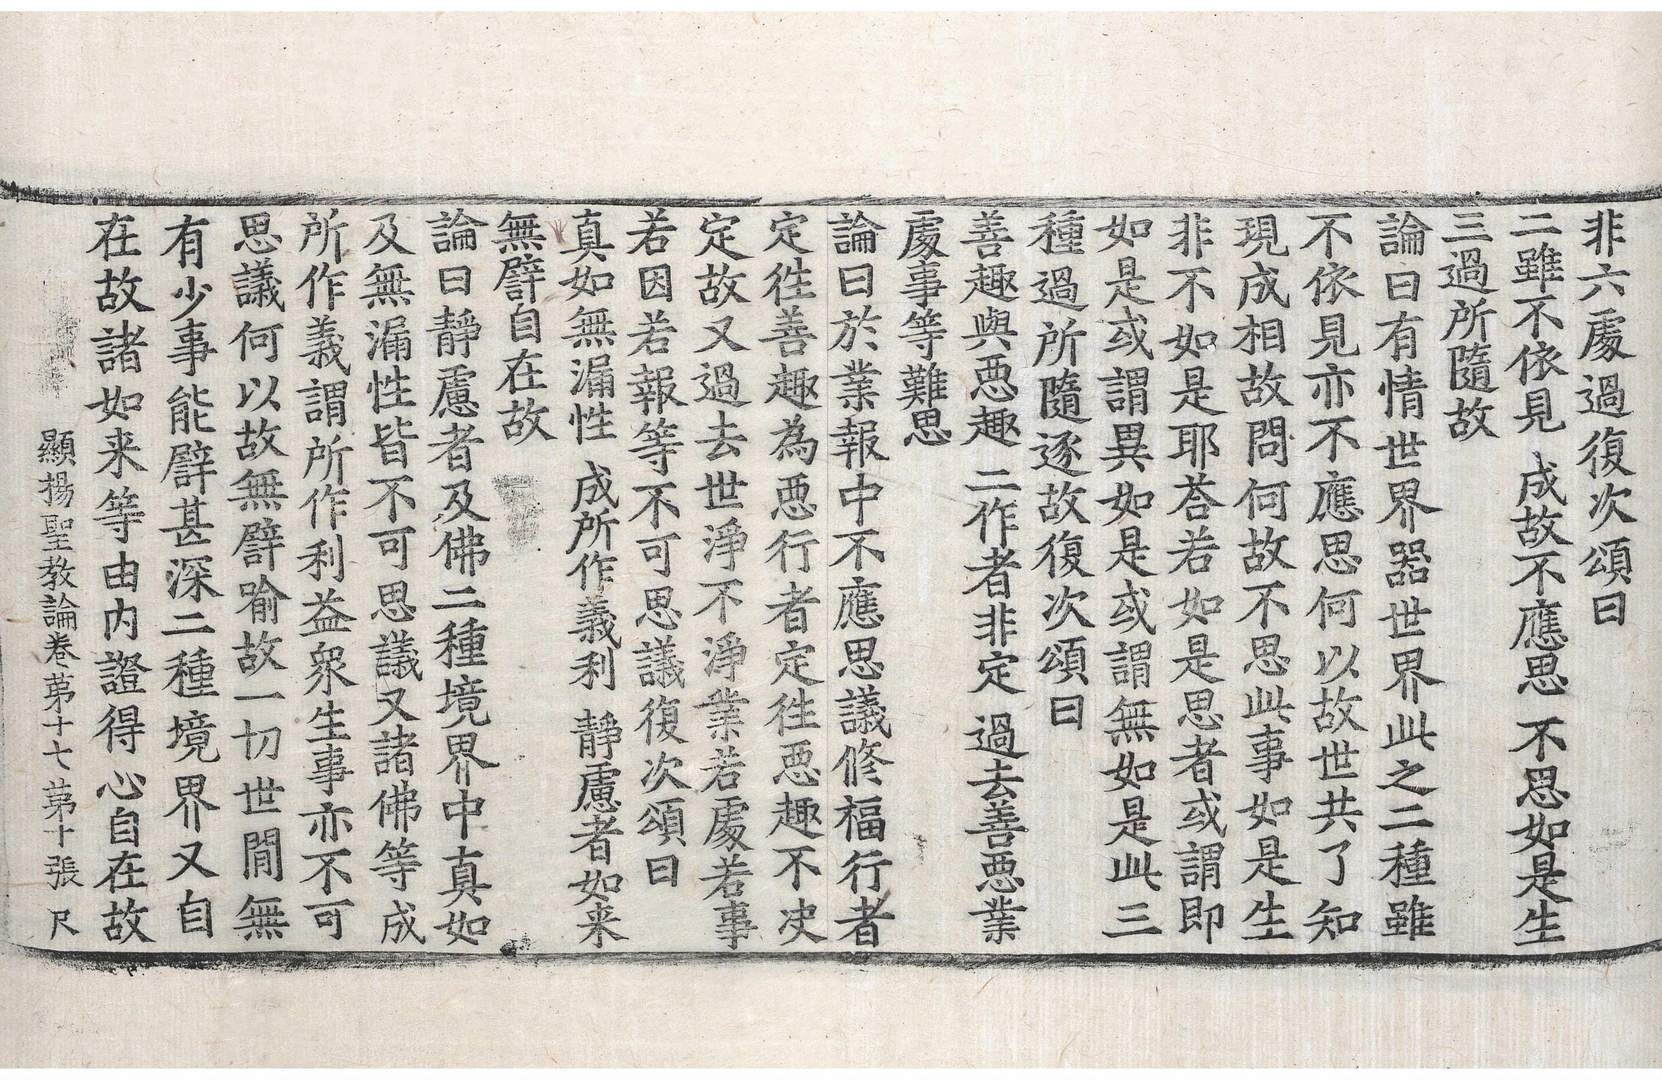 非六處過復次頌曰
二雖不依見 成故不應思 不思如是生
三過所隨故
論曰有情世界器世界此之二種雖
不依見亦不應思何以故世共了知
現成相故問何故不思此事如是生
非不如是耶荅若如是思者或謂即
如是或謂異如是或謂無如是此三
種過所隨逐故復次頌曰
善趣與惡趣 二作者非定 過去善惡業
處事等難思
論曰於業報中不應思議修福行者
定徃善趣為惡行者定徃惡趣不决
定故又過去世淨不淨業若處若事
若因若報等不可思議復次頌曰
真如無漏性 成所作義利 靜慮者如来
無譬自在故
論曰靜慮者及佛二種境界中真如
及無漏性皆不可思議又諸佛等成
所作義謂所作利益衆生事亦不可
思議何以故無譬喻故一切世間無
有少事能譬甚深二種境界又自
在故諸如来等由内證得心自在故
顯揚聖教論卷苐十七 苐十張 尺